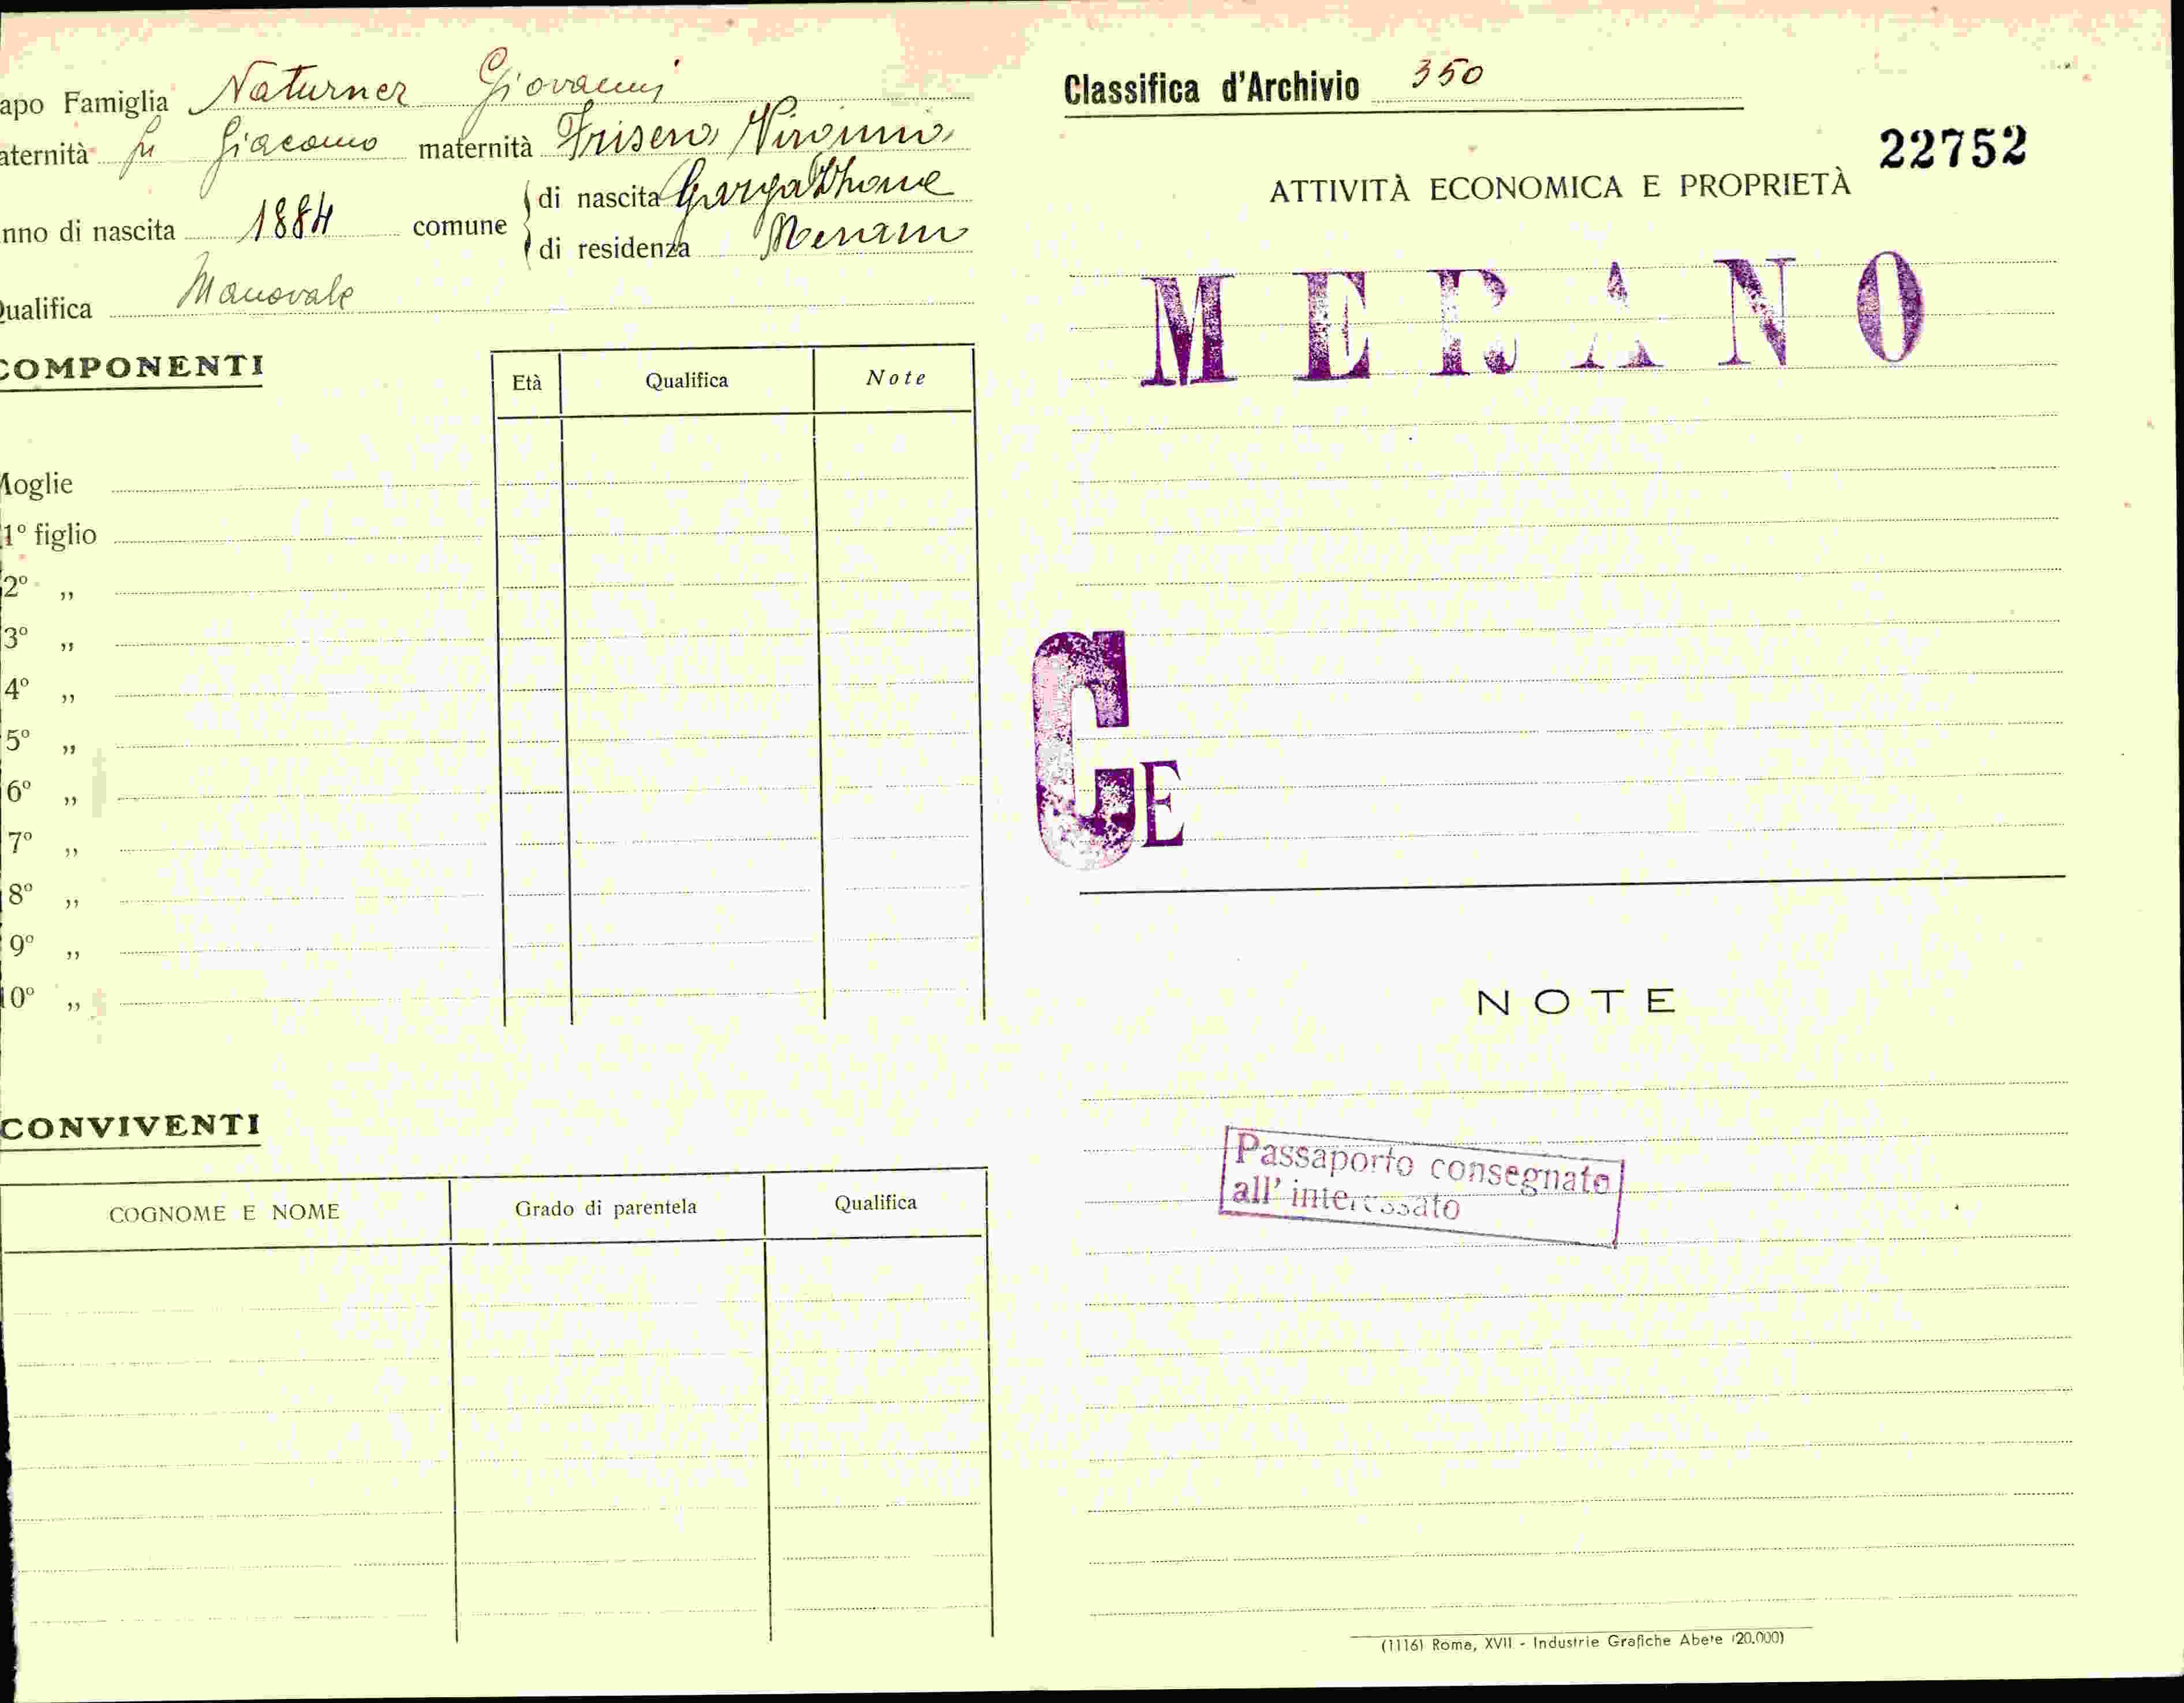 apo Famiglia Naturner Giovanni
aternità fu Giacomo maternità
nno di nascita 1884 comune
di nascita
di residenza Merano
Qualifica Manovale
COMPONENTI
Età Qualifica Note
Moglie
1º figlio
2º „
3º „
4º „
5º „
6º „
7º „
8º „
9º „
10º „
CONVIVENTI
COGNOME E NOME Grado di parentela Qualifica
Classifica d'Archivio 350
22752
ATTIVITÀ ECONOMICA E PROPRIETÀ
MERANO
GE
NOTE
Passaporto consegnato
all' interessato
(1116) Roma, XVII - Industrie Grafiche Abete (20.000)